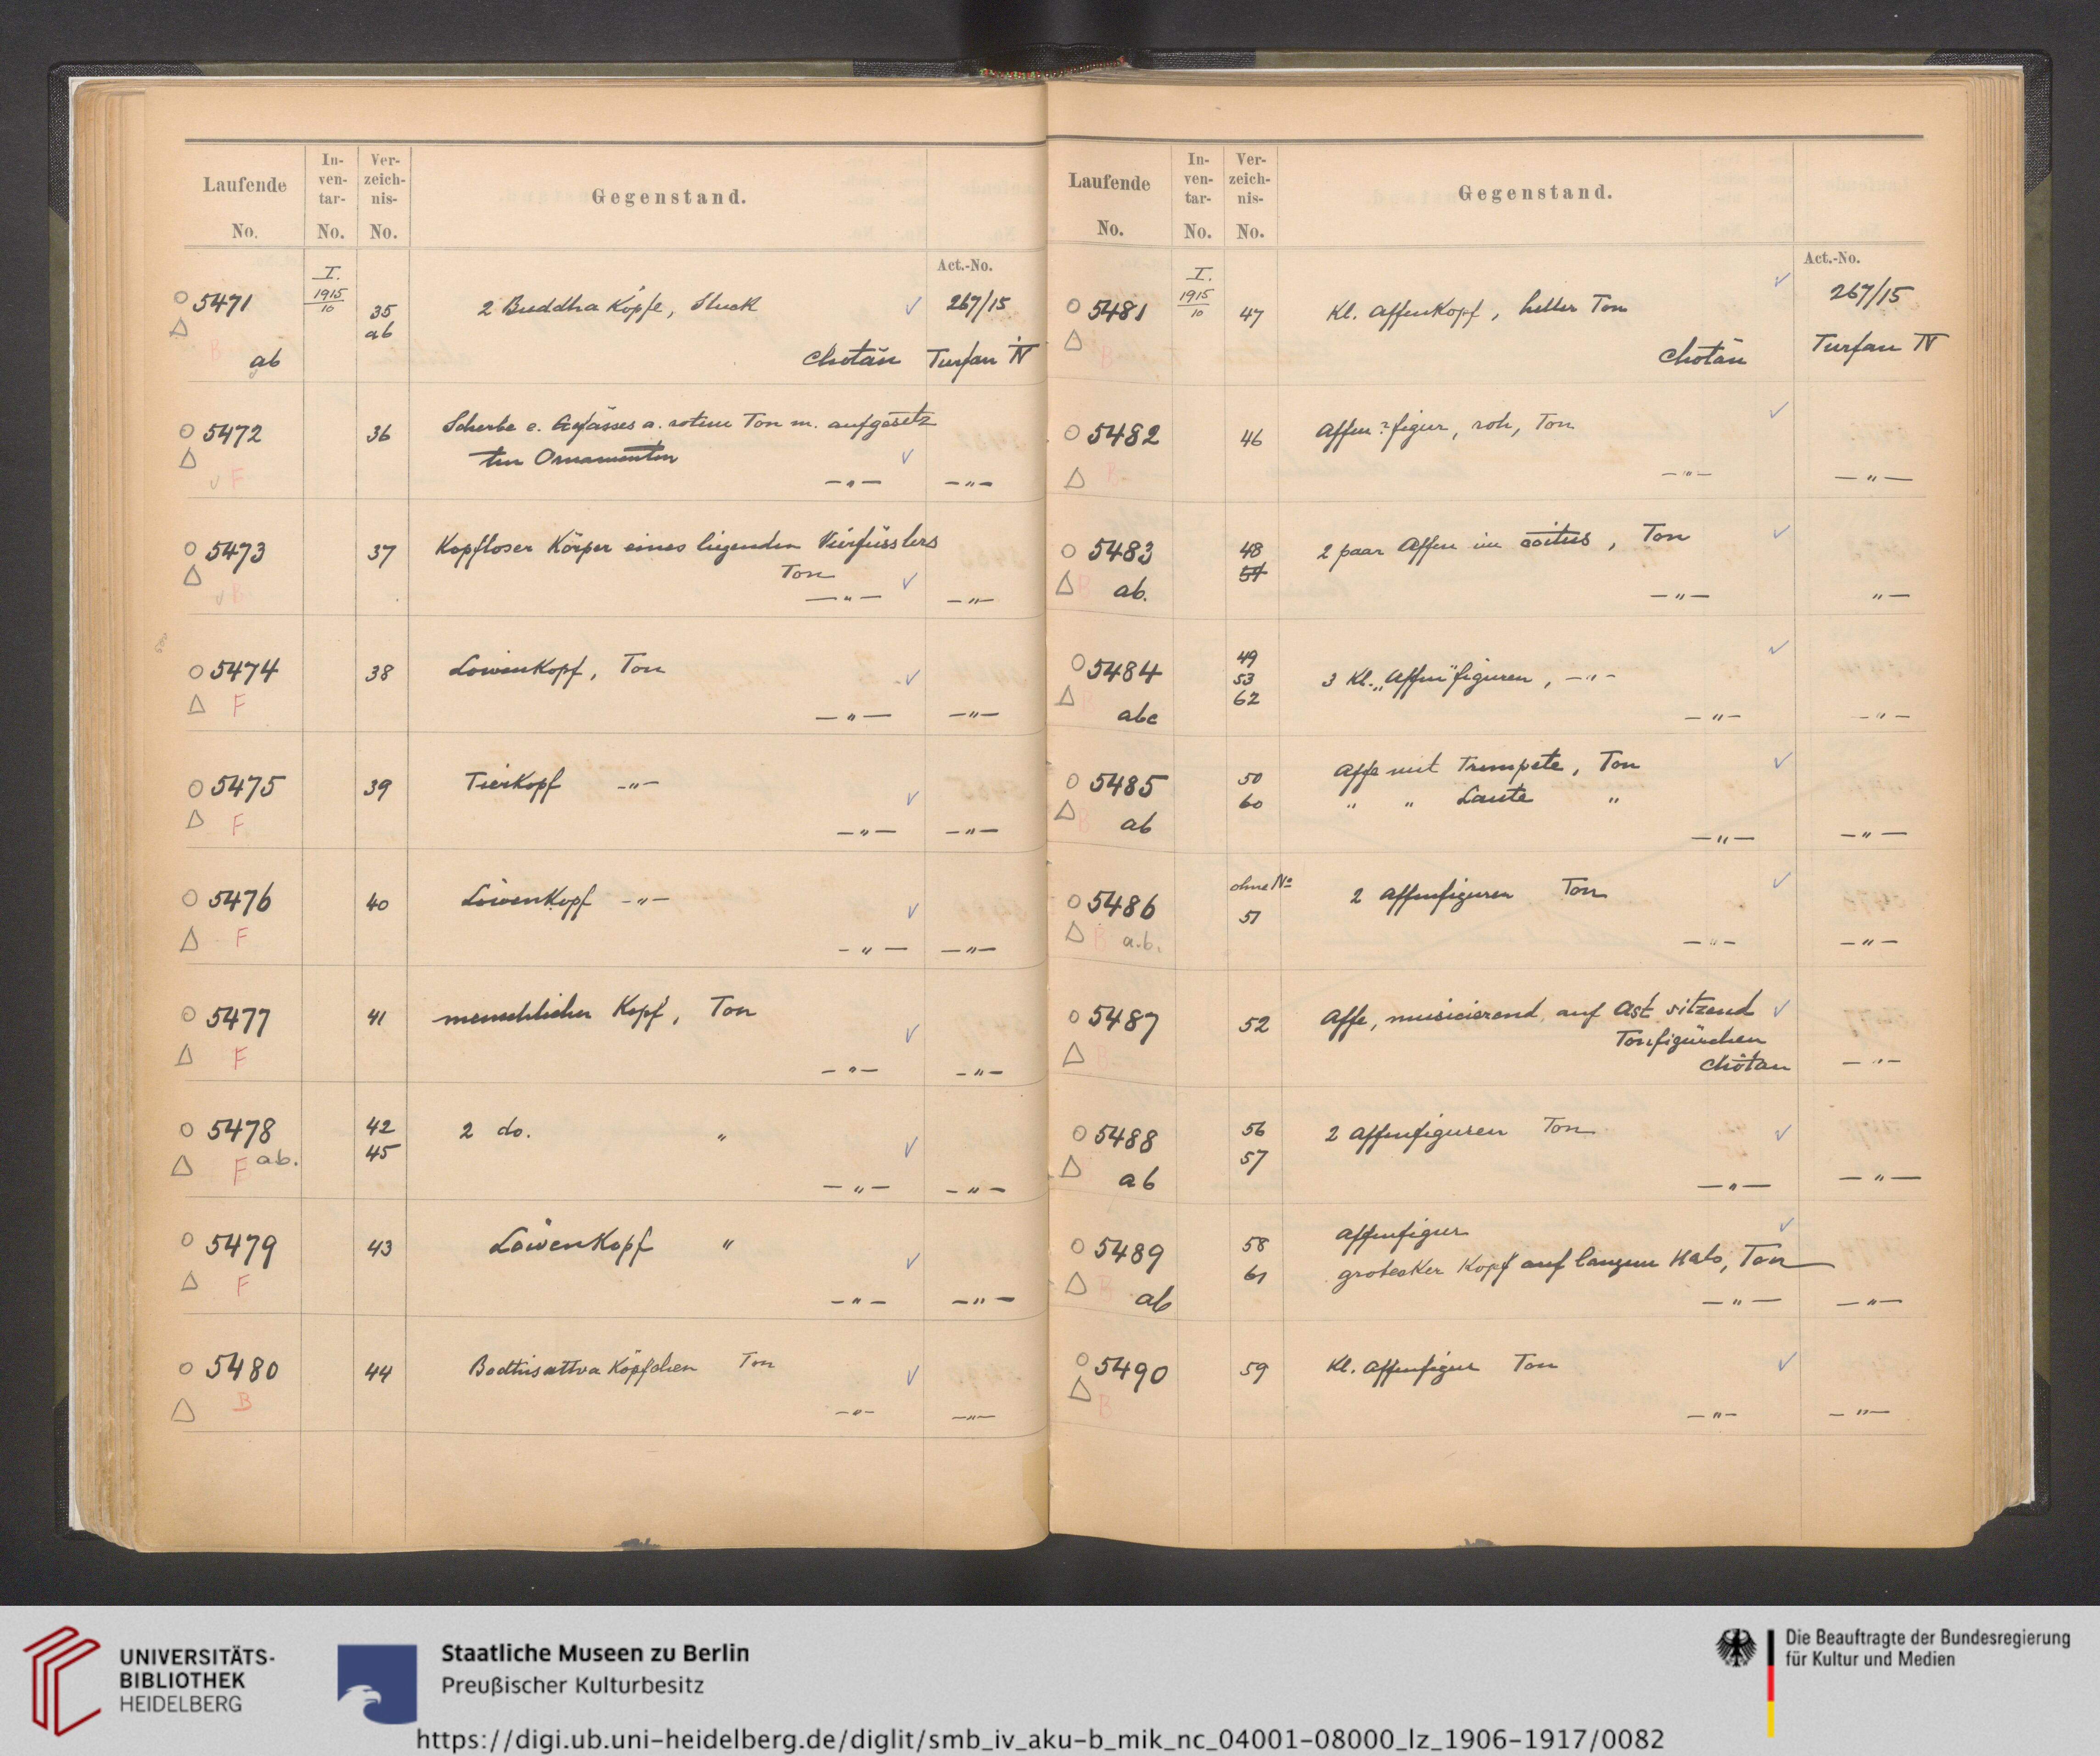 Laufende No.
In-ven-tar- No.
Ver-zeich-nis- No.
Gegenstand.
Act.-No.
5471 ab
I. 1915/10
35 ab
2 Buddha Köpfe, Stuck ✓ 267/15
Chotän Turfan IV
B
5472
36
Scherbe e. Gefässes a. rotem Ton m. aufgesetz
ten Ornamenten ✓
F
—"— —"—
5473
37
Kopfloser Körper eines liegenden Vierfüsslers
Ton ✓
B
—"— —"—
5474
38
Löwenkopf, Ton ✓
F
—"— —"—
5475
39
Tierkopf -"- ✓
F
—"— —"—
5476
40
Löwenkopf -"- ✓
F
—"— —"—
5477
41
menschlicher Kopf, Ton ✓
F
—"— —"—
5478 ab.
42
45
2 do. " ✓
F
—"— —"—
5479
43
Löwenkopf " ✓
F
—"— —"—
5480
44
Bodhisattva Köpfchen Ton ✓
B
—"— —"—
Laufende No.
In-ven-tar- No.
Ver-zeich-nis- No.
Gegenstand.
Act.-No.
5481
I. 1915/10
47
Kl. Affenkopf, heller Ton ✓ 267/15
Chotän Turfan IV
B
5482
46
Affen?figur, roh, Ton ✓
B
—"— —"—
5483 ab.
48
54
2 paar Affen im coitus, Ton ✓
B
—"— "—
5484 abc
49
53
62
3 Kl. „Affen"figuren, —"— ✓
B
—"— —"—
5485 ab
50
60
Affe mit Trompete, Ton ✓
" " Laute "
B
—"— —"—
5486 a.b.
ohne No
51
2 Affenfiguren Ton ✓
B
—"— —"—
5487
52
Affe, musicierend, auf Ast sitzend ✓
Tonfigürchen
Chotan —"—
B
5488 ab
56
57
2 Affenfiguren Ton ✓
—"— —"—
5489 ab
58
61
Affenfigur ✓
grotesker Kopf auf langem Hals, Ton
B
—"— —"—
5490
59
Kl. Affenfigur Ton ✓
B
—"— —"—
UNIVERSITÄTS-
BIBLIOTHEK
HEIDELBERG
Staatliche Museen zu Berlin
Preußischer Kulturbesitz
Die Beauftragte der Bundesregierung
für Kultur und Medien
https://digi.ub.uni-heidelberg.de/diglit/smb_iv_aku-b_mik_nc_04001-08000_lz_1906-1917/0082